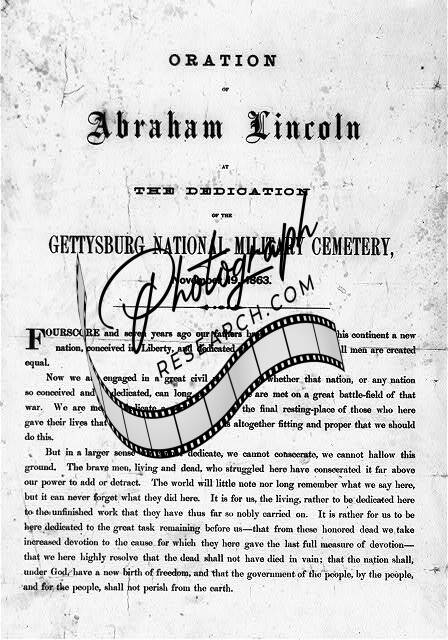 ORATION
OF
Abraham Lincoln
AT
THE DEDICATION
OF THE
GETTYSBURG NATIONAL MILITARY CEMETERY,
November 19, 1863.
Photograph
RESEARCH.COM
FOURSCORE and seven years ago our fathers continent a new
nation, conceived in Liberty, and dedicated men are created
equal.
Now we engaged in a great civil whether that nation, or any nation
so conceived and dedicated, can long are met on a great battle-field of that
war. We are the final resting-place of those who here
gave their lives that altogether fitting and proper that we should
do this.
But in a larger sense dedicate, we cannot consecrate, we cannot hallow this
ground. The brave men, living and dead, who struggled here have consecrated it far above
our power to add or detract. The world will little note nor long remember what we say here,
but it can never forget what they did here. It is for us, the living, rather to be dedicated here
to the unfinished work that they have thus far so nobly carried on. It is rather for us to be
here dedicated to the great task remaining before us—that from these honored dead we take
increased devotion to the cause for which they here gave the last full measure of devotion—
that we here highly resolve that the dead shall not have died in vain; that the nation shall,
under God, have a new birth of freedom, and that the government of the people, by the people,
and for the people, shall not perish from the earth.